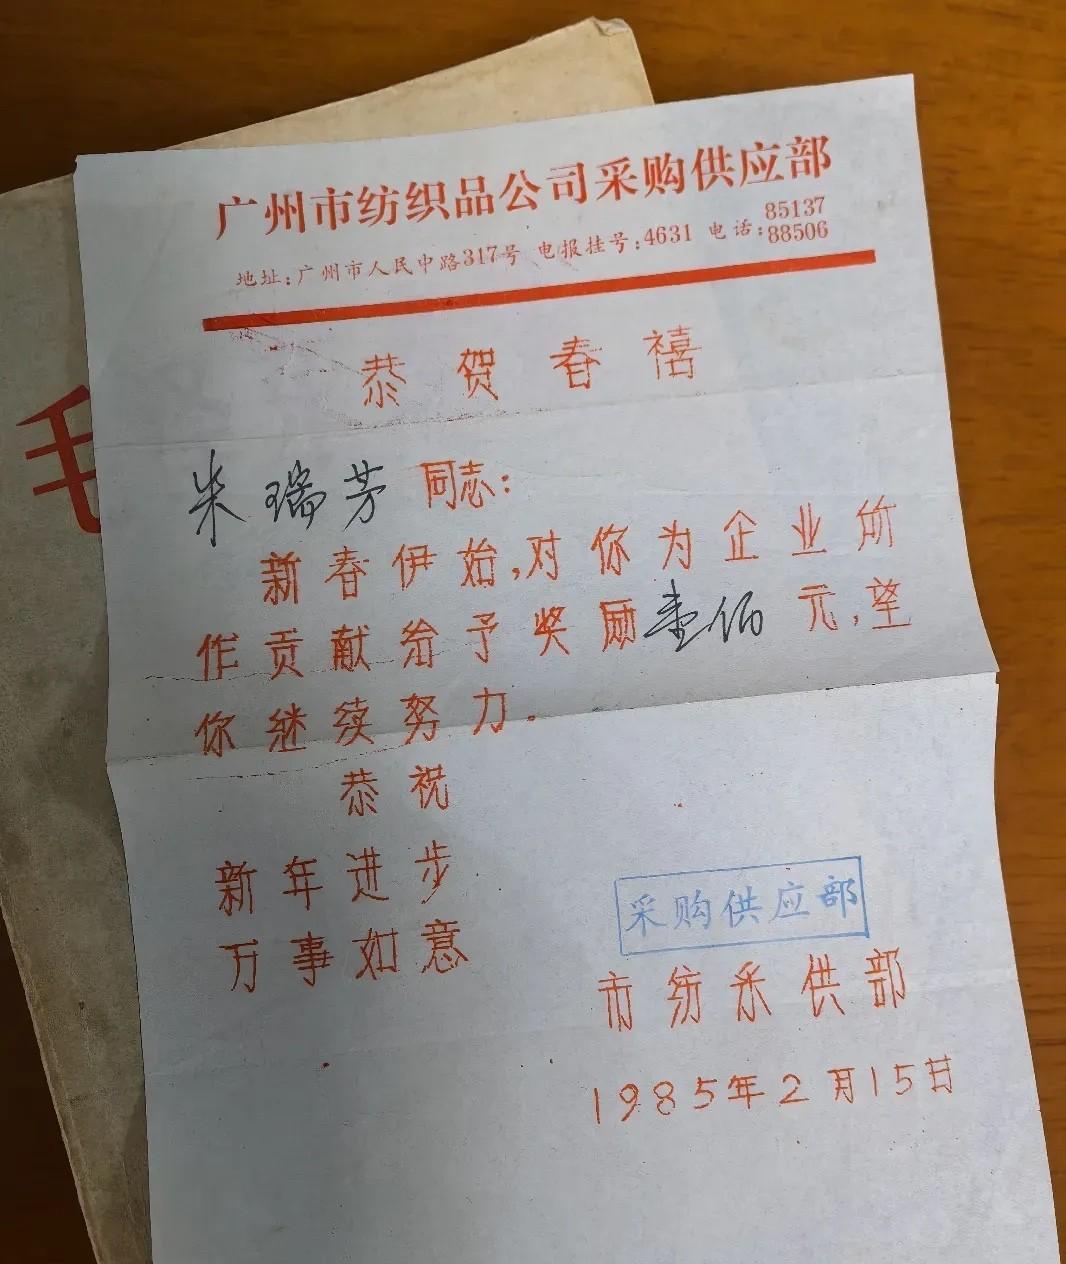 广州市纺织品公司采购供应部
地址:广州市人民中路317号 电报挂号:4631 电话:85137 88506
恭贺春禧
朱瑞芳 同志:
新春伊始,对你为企业所
作贡献给予奖励壹佰元,望
你继续努力.
恭祝
新年进步
万事如意
采购供应部
市纺采供部
1985年2月15日
毛